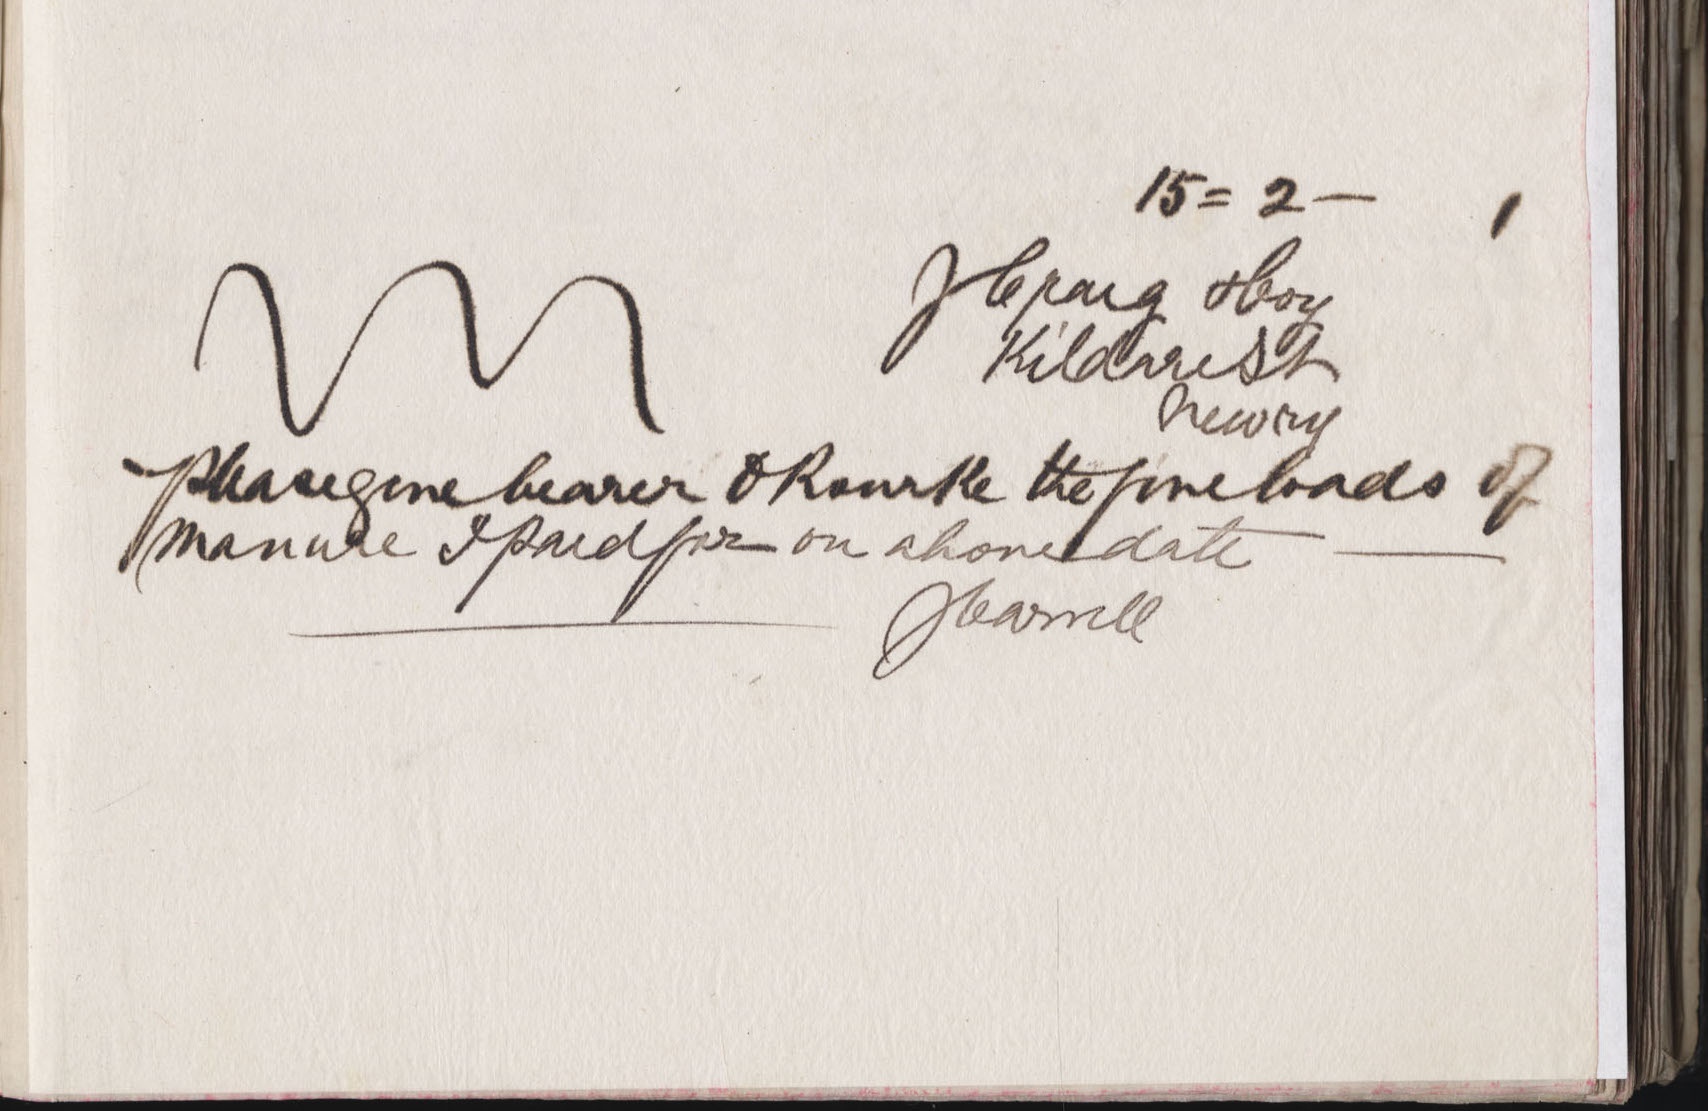 15 = 2 — 1
J Craig & Coy
Kildare St
Newry
Please give bearer O Rourke the five loads of
manure I paid for on above date —
J Carroll